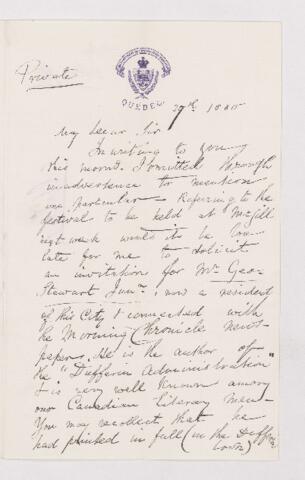 Private
QUEBEC
27th
My dear Sir
In writing to you
this morng. I omitted through
inadvertence to mention
one particular – Referring to the
festival to be held at McGill
next week would it be too
late for me to solicit
an invitation for Mr Geo.
Stewart Junr., now a resident
of this City & connected with
the Morning Chronicle news-
paper. He is the author of
the "Dufferin Administration"
& is very well known among
our Canadian Literary Men –
You may recollect that he
had printed in full (in the Dufferin